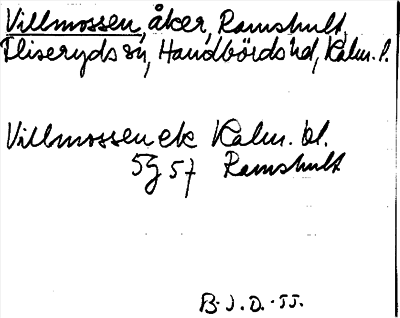 Villmossen, åker, Ramshult,
Fliseryds sn, Handbörds hd, Kalm. l.
Villmossen ek Kalm. bl.
5g 57 Ramshult
B.J.D. -55.